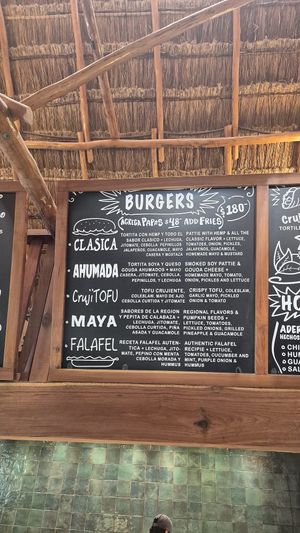 BURGERS
AGREGA PAPAS $48 ADD FRIES
$180
CLASICA
TORTITA CON HEMP Y TODO EL
SABOR CLASICO + LECHUGA,
JITOMATE, CEBOLLA, PEPINILLOS,
JALAPEÑOS, GUACAMOLE, MAYO
CASERA Y MOSTAZA
PATTIE WITH HEMP & ALL THE
CLASSIC FLAVOR + LETTUCE,
TOMATOES, ONION, PICKLES,
JALAPEÑOS, GUACAMOLE,
HOMEMADE MAYO & MUSTARD
AHUMADA
TORTITA SOYA Y QUESO
GOUDA AHUMADOS + MAYO
CASERA, JITOMATE, CEBOLLA,
PEPINILLOS, Y LECHUGA
SMOKED SOY PATTIE &
GOUDA CHEESE +
HOMEMADE MAYO, TOMATO,
ONION, PICKLES AND LETTUCE
CrujiTOFU
TOFU CRUJIENTE,
COLESLAW, MAYO DE AJO,
CEBOLLA CURTIDA Y JITOMATE
CRISPY TOFU, COLESLAW,
GARLIC MAYO, PICKLED
ONION & TOMATO
MAYA
SABORES DE LA REGION
Y PEPITA DE CALABAZA +
LECHUGA, JITOMATE,
CEBOLLA CURTIDA, PIÑA
ASADA Y GUACAMOLE
REGIONAL FLAVORS &
PUMPKIN SEEDS +
LETTUCE, TOMATOES,
PICKLED ONIONS, GRILLED
PINEAPPLE & GUACAMOLE
FALAFEL
RECETA FALAFEL AUTEN-
TICA + LECHUGA, JITO-
MATE, PEPINO CON MENTA
CEBOLLA MORADA Y
HUMMUS
AUTHENTIC FALAFEL
RECIPIE + LETTUCE,
TOMATOES, CUCUMBER AND
MINT, PURPLE ONION &
HUMMUS
Cru
TORTIL
ADER
HECHOS